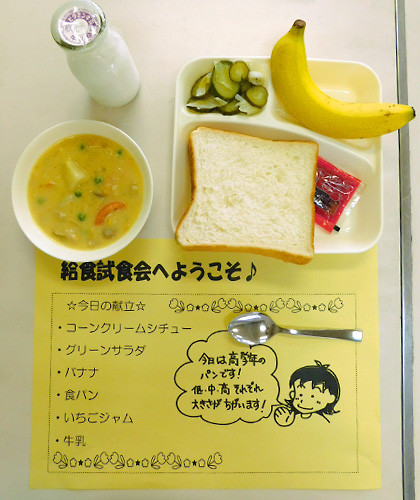 給食試食会へようこそ♪
☆今日の献立☆
・コーンクリームシチュー
・グリーンサラダ
・バナナ
・食パン
・いちごジャム
・牛乳
今日は高学年の
パンです!
低・中・高 それぞれ
大きさが ちがいます!